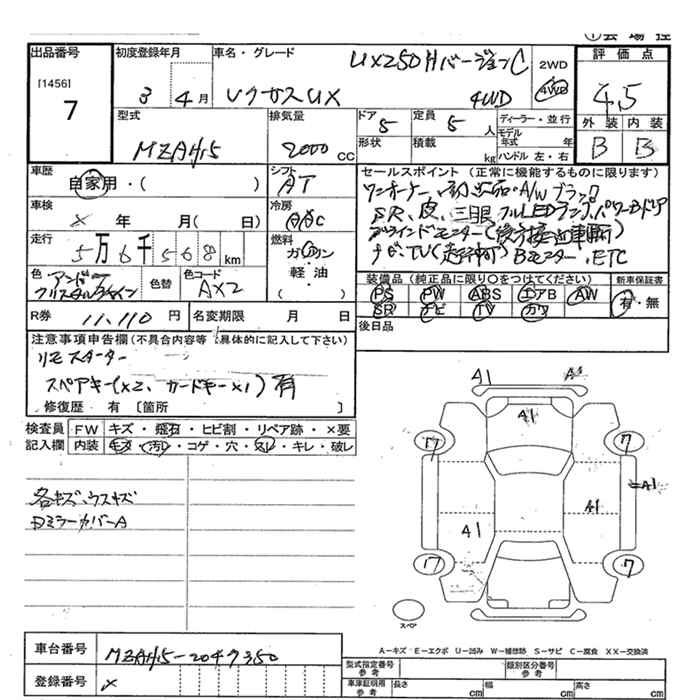 ①会場控
出品番号 初度登録年月 車名・グレード 評価点
[1456] UX250HバージョンC 2WD
7 3 4月 レクサスUX 4WD 4WD 4.5
型式 排気量 ドア 定員 ディーラー・並行 外装 内装
MZAH15 2000cc 5 5人 モデル年式 年 B B
形状 積載 kg ハンドル 左・右
車歴 シフト セールスポイント(正常に機能するものに限ります)
自家用・( ) AT ワンオーナー、
車検 冷房 SR、皮、三眼フルLEDランプ、パワーBドア
× 年 月(日) AAC
走行 燃料
5万6千568km ガソリン ナビ、TV(走行中可)Bモニター、ETC
軽油
( )
色 色替 色コード 装備品(純正品に限り○をつけてください) 新車保証書
AX2 PS PW ABS エアB AW 有・無
SR ナビ TV カワ
R券 11,110円 名変期限 月 日 後日品
注意事項申告欄(不具合内容等具体的に記入して下さい)
リモスターター
スペアキー(×2、カードキー×1)有
修復歴 有[箇所 ]
A1
A1
検査員 FW キズ・飛石・ヒビ割・リペア跡・×要
記入欄 内装 キズ・汚レ・コゲ・穴・スレ・キレ・破レ
7 7
A1
各キズ、ウスキズ
A1
DミラーカバーA
A1
7 7
スペア
A-キズ E-エクボ U-凹み W-補修跡 S-サビ C-腐食 XX-交換済
車台番号 MZAH15-2049350 型式指定番号 参考 類別区分番号 参考
登録番号 × 車庫証明用 参考 長さ cm 幅 cm 高さ cm